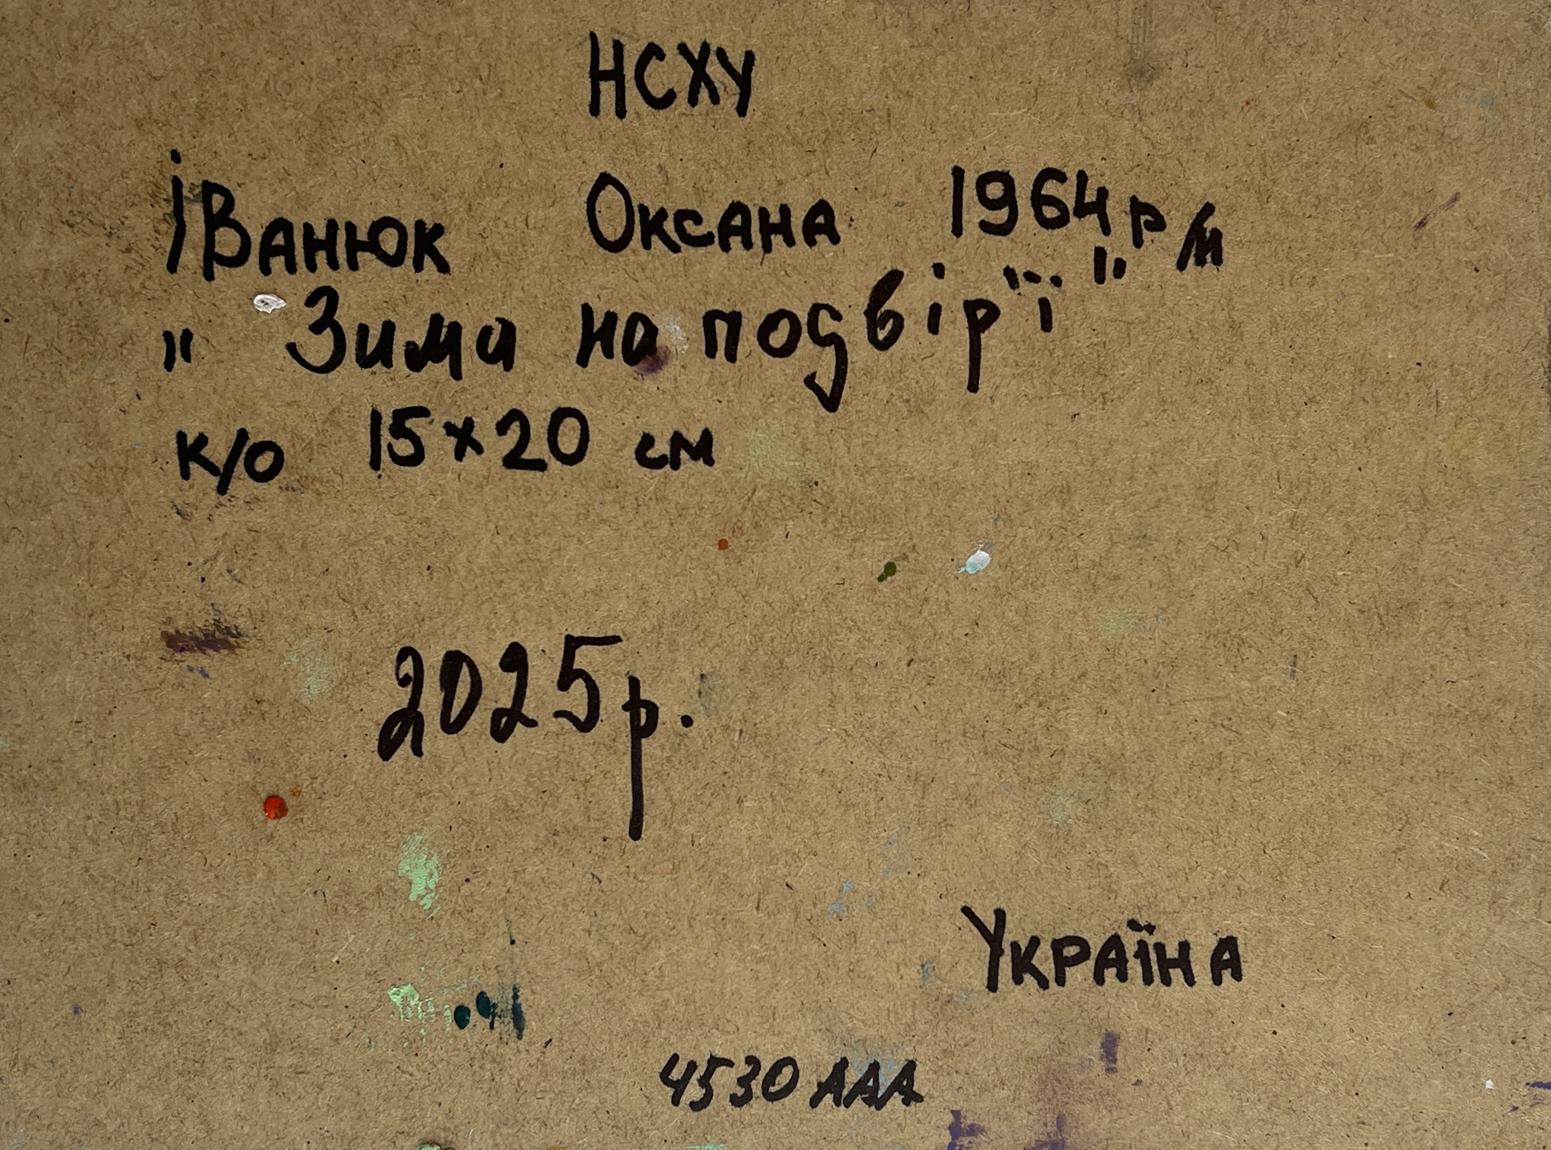 НСХУ
Іванюк Оксана 1964 р/н
"Зима на подвір"ї"
к/о 15х20 см
2025р.
Україна
4530 ААА